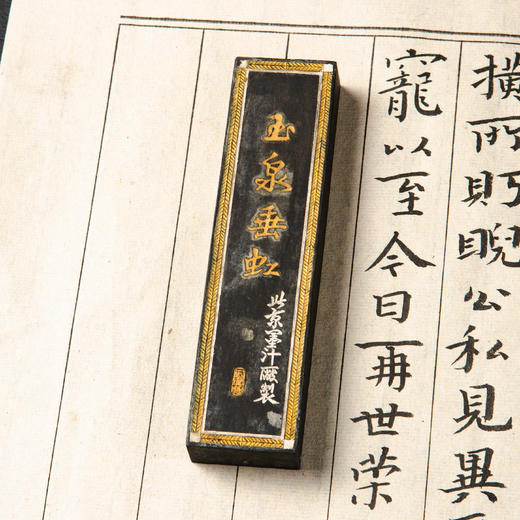 横所眄睨公私見異
寵以至今日再世榮
玉泉垂虹
北京墨汁廠製